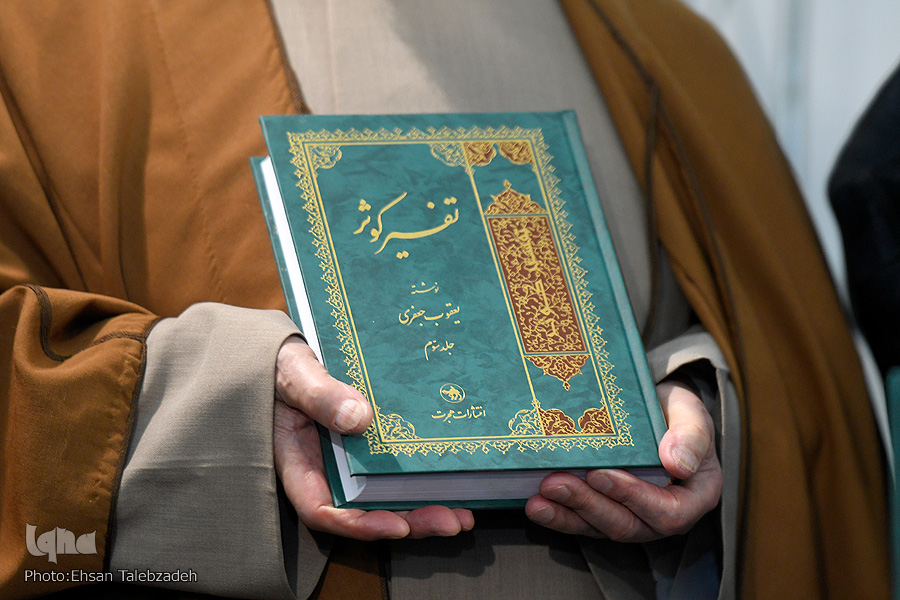 تفسیر کوثر
نوشته
یعقوب جعفری
جلد سوم
انتشارات هجرت
iqna
Photo:Ehsan Talebzadeh